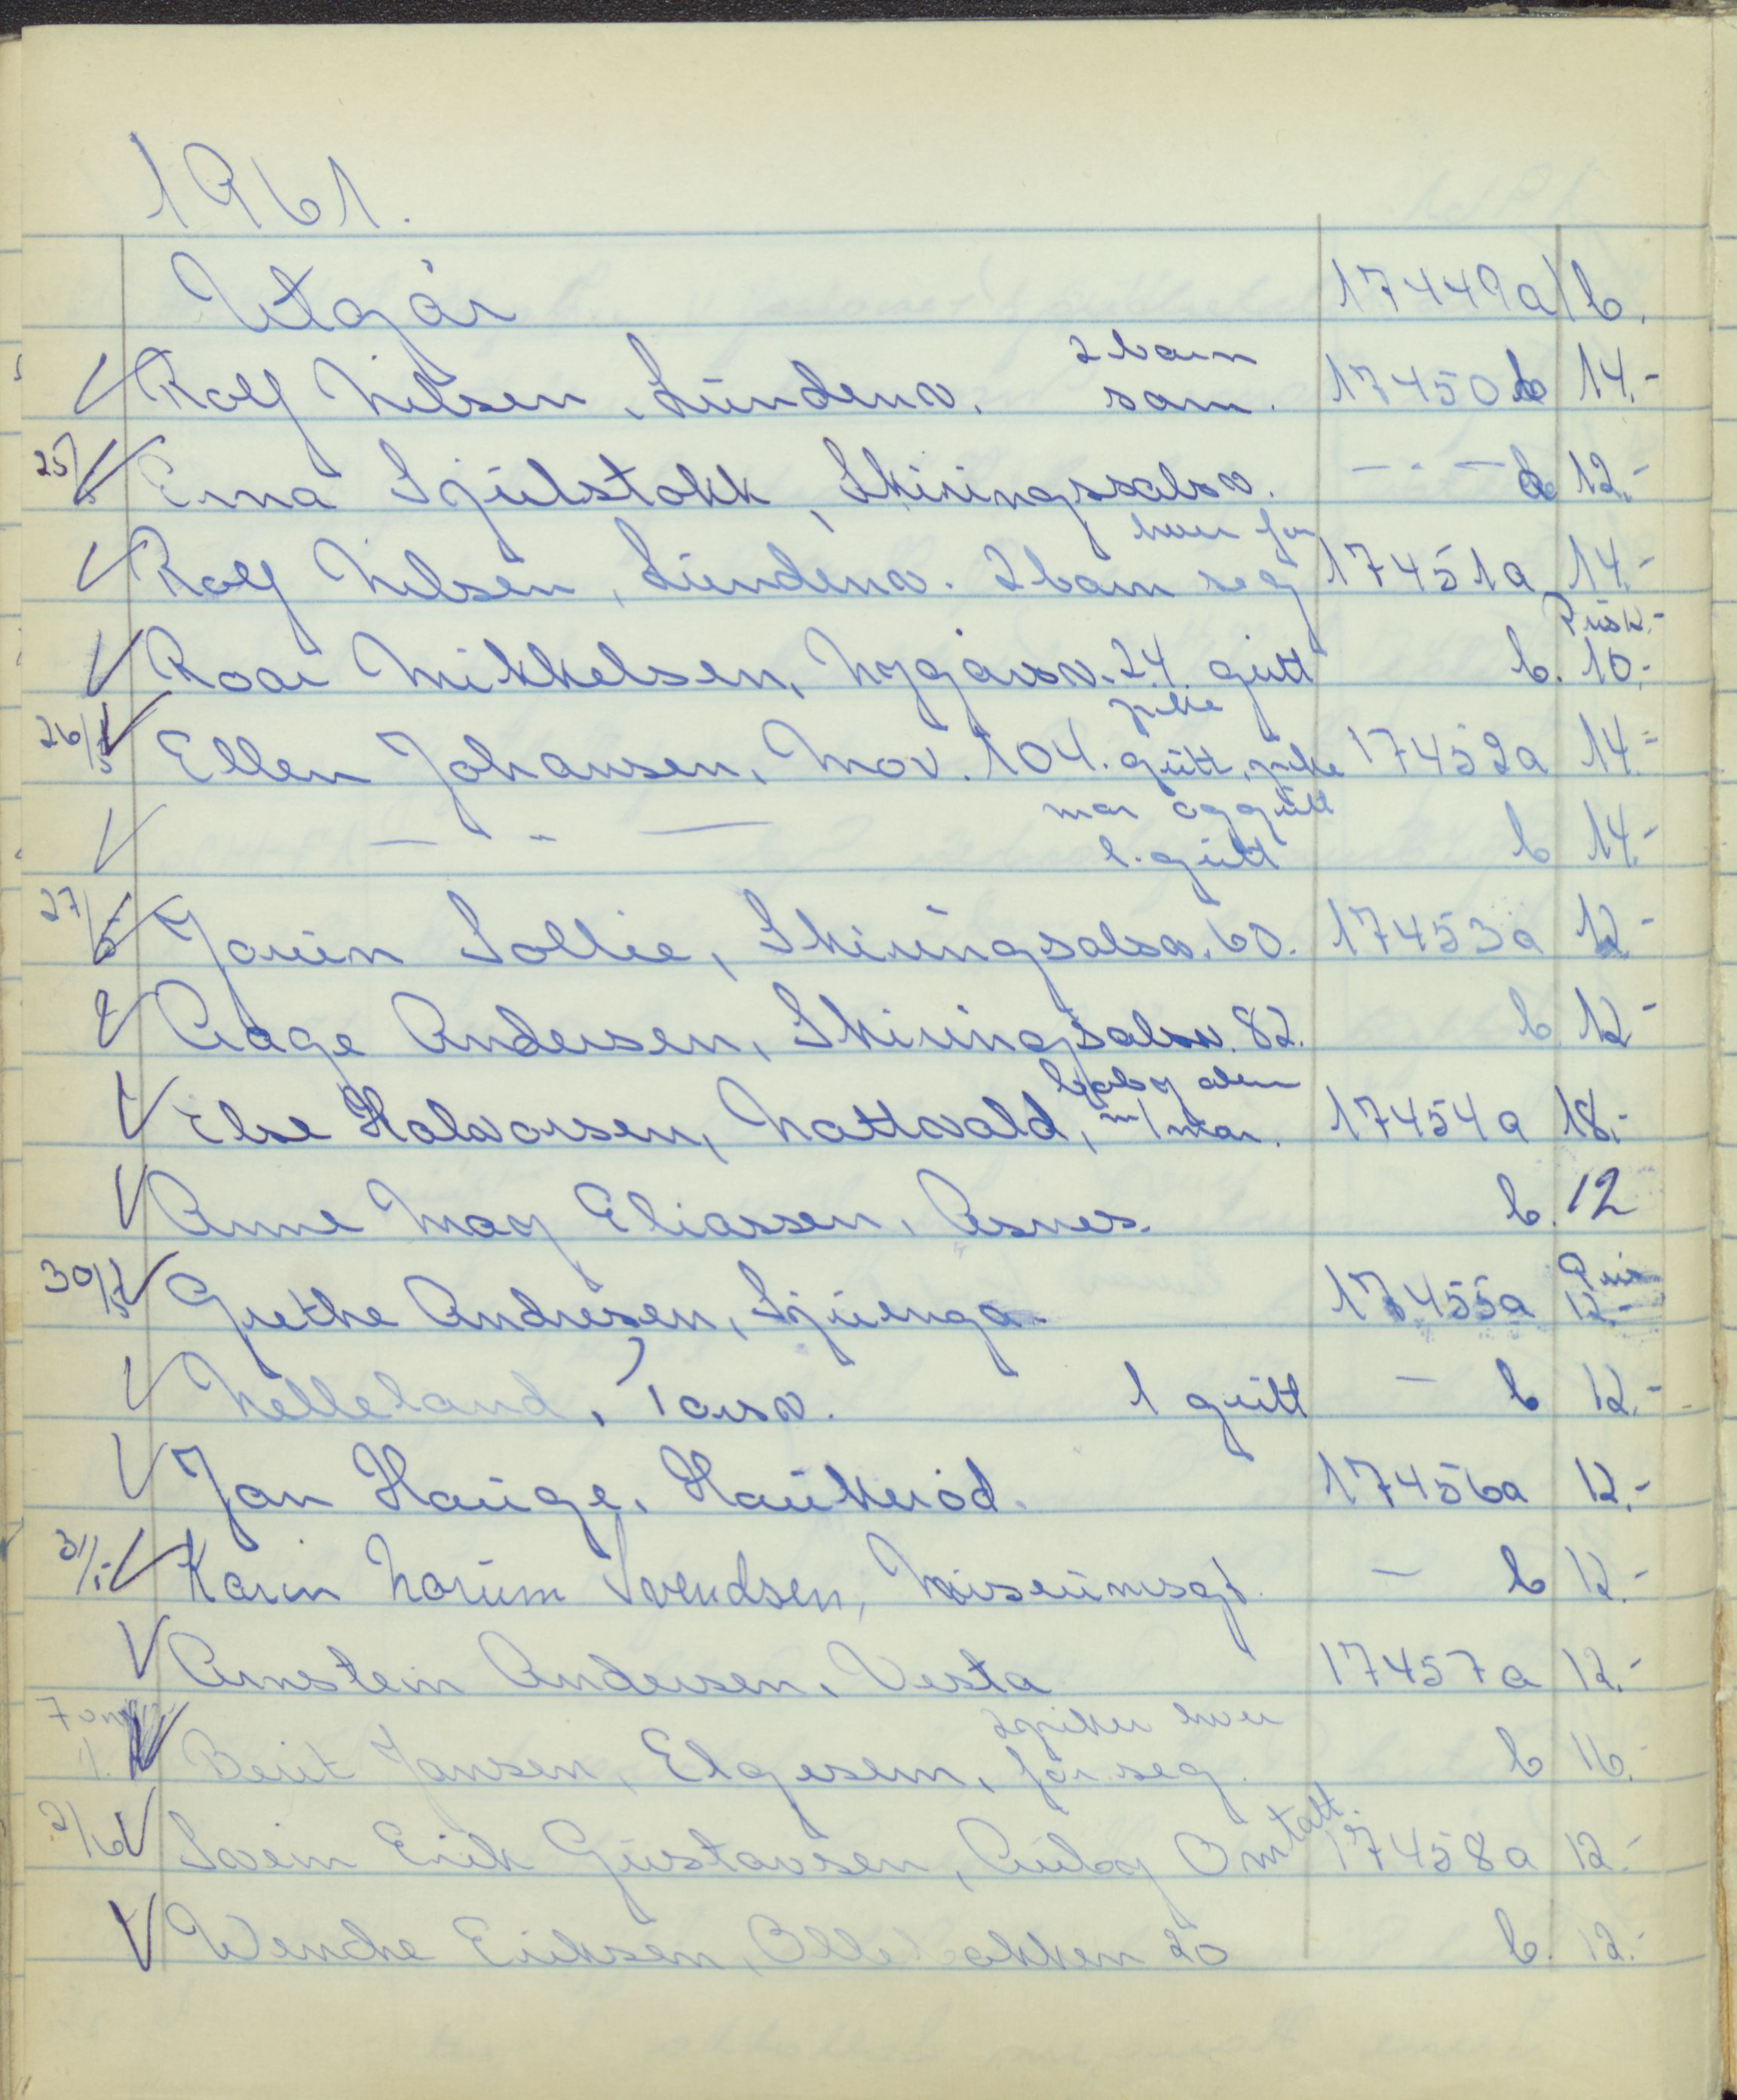 1961.
Utgår 17449a/b.
Rolf Nilsen, Lundenv. 2 barn sam. 17450 b 14.-
25/5 Erna Sjulstokk, Skiringssalsv. — " — a 12.-
Rolf Nilsen, Lundenv. 2 barn hver for seg 17451a 14.-
Roar Mikkelsen, Nygårsv. 24. gutt b. Pris 12.- 10.-
26/5 Ellen Johansen, Mov. 104. gutt, pike pike 17452a 14.-
— " — mor og gutt l. gutt b 14.-
27/5 Jorun Sollie, Skiringsalsv. 60. 17453a 12.-
Aage Andersen, Skiringsalsv. 82. b 12.-
Else Halvorsen, Nattvald, baby alene m/mor. 17454a 18.-
Anne May Eliassen, Asnes. b. 12
30/5 Grethe Andresen, Sjuenga. 17455a Pris 12.-
Nelleland, Torsv. 1 gutt — b 12.-
Jan Hauge, Haukerød. 17456a 12.-
31/5 Karin Norum Svendsen, Museumsgt. — b 12.-
Arnstein Andersen, Vesta 17457a 12.-
Berit Jansen, Elgesem, 2 piker hver for seg. b 16.
2/6 Svein Erik Gustavsen, Auby Omtatt. 17458a 12.-
Wenche Eriksen, Ollebakken 20 b. 12.-